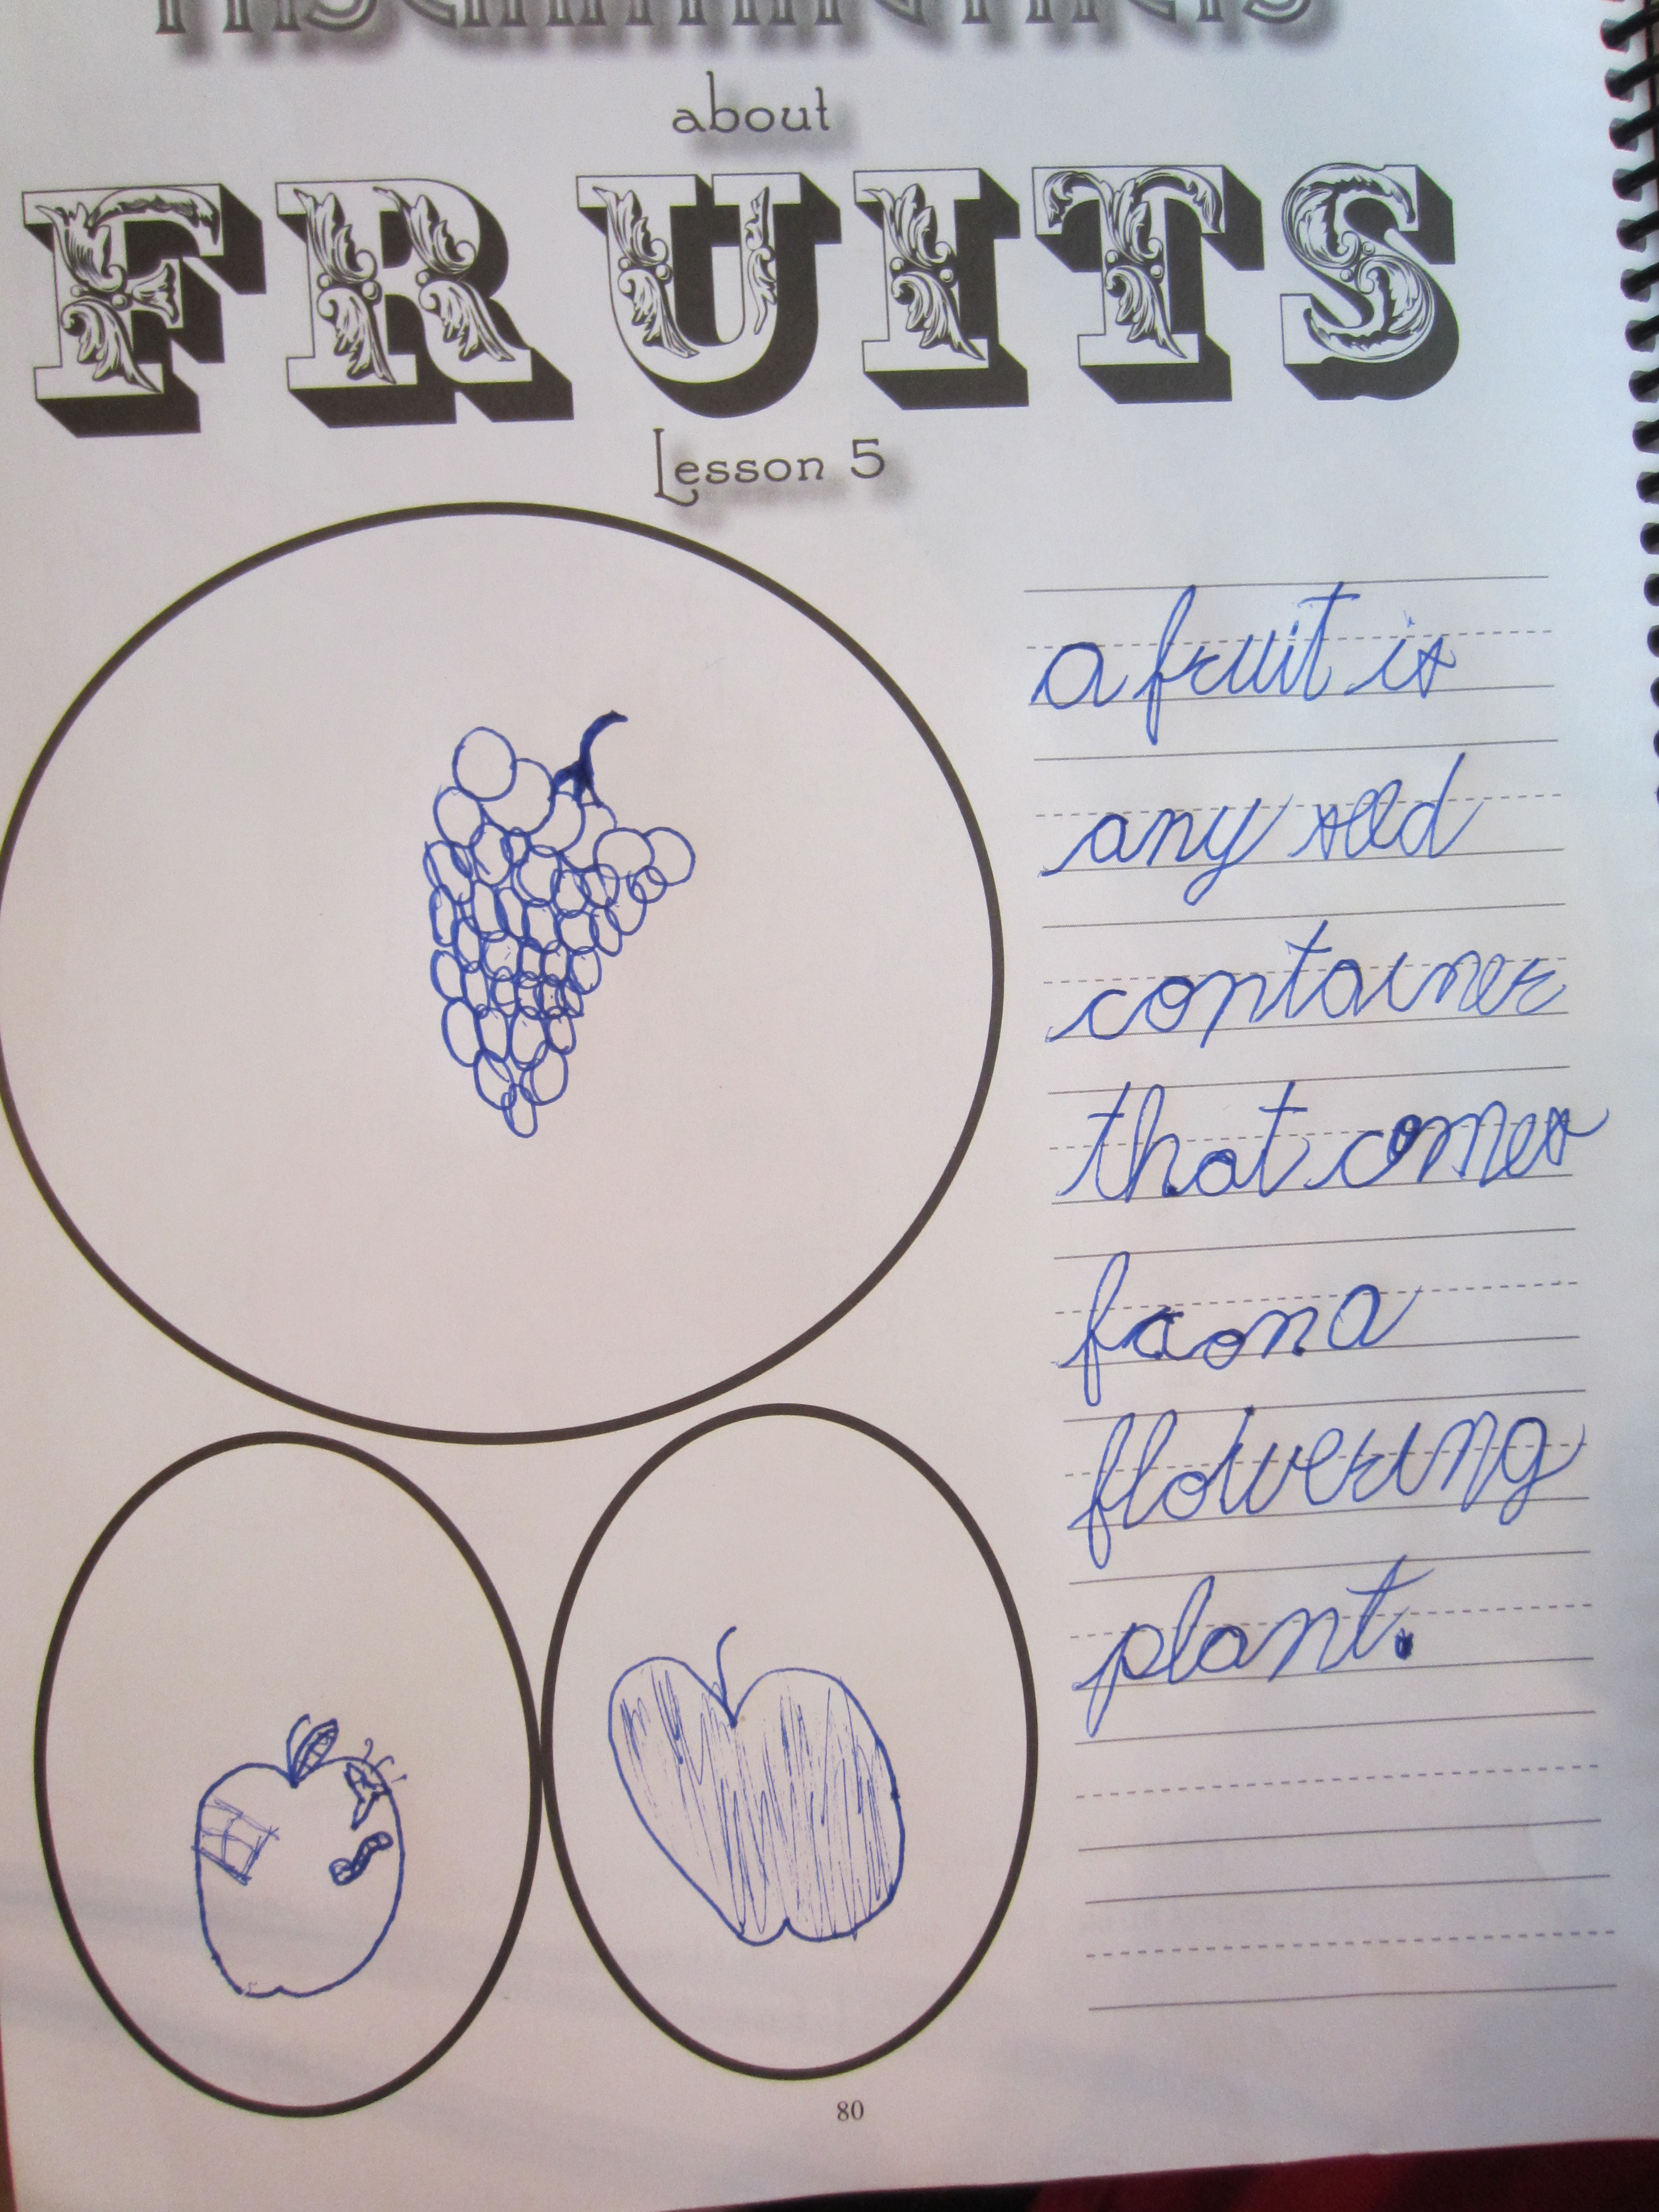 about
FRUITS
Lesson 5
a fruit is
any seed
container
that comes
fron a
flowering
plant.
80